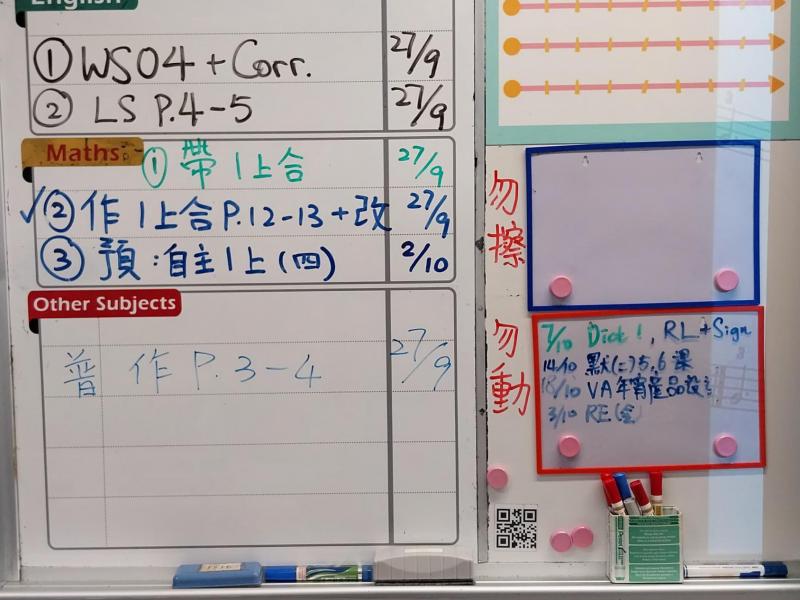 English
① WS04 + Corr. 27/9
② LS P.4-5 27/9
Maths
① 帶1上合 27/9
✓② 作1上合P.12-13+改 27/9
③ 預:自主1上(四) 2/10
Other Subjects
普 作P.3-4 27/9
勿擦
勿動
7/10 Dict 1, RL+Sign
14/10 默(二)5,6課
18/10 VA年宵產品設
3/10 RE